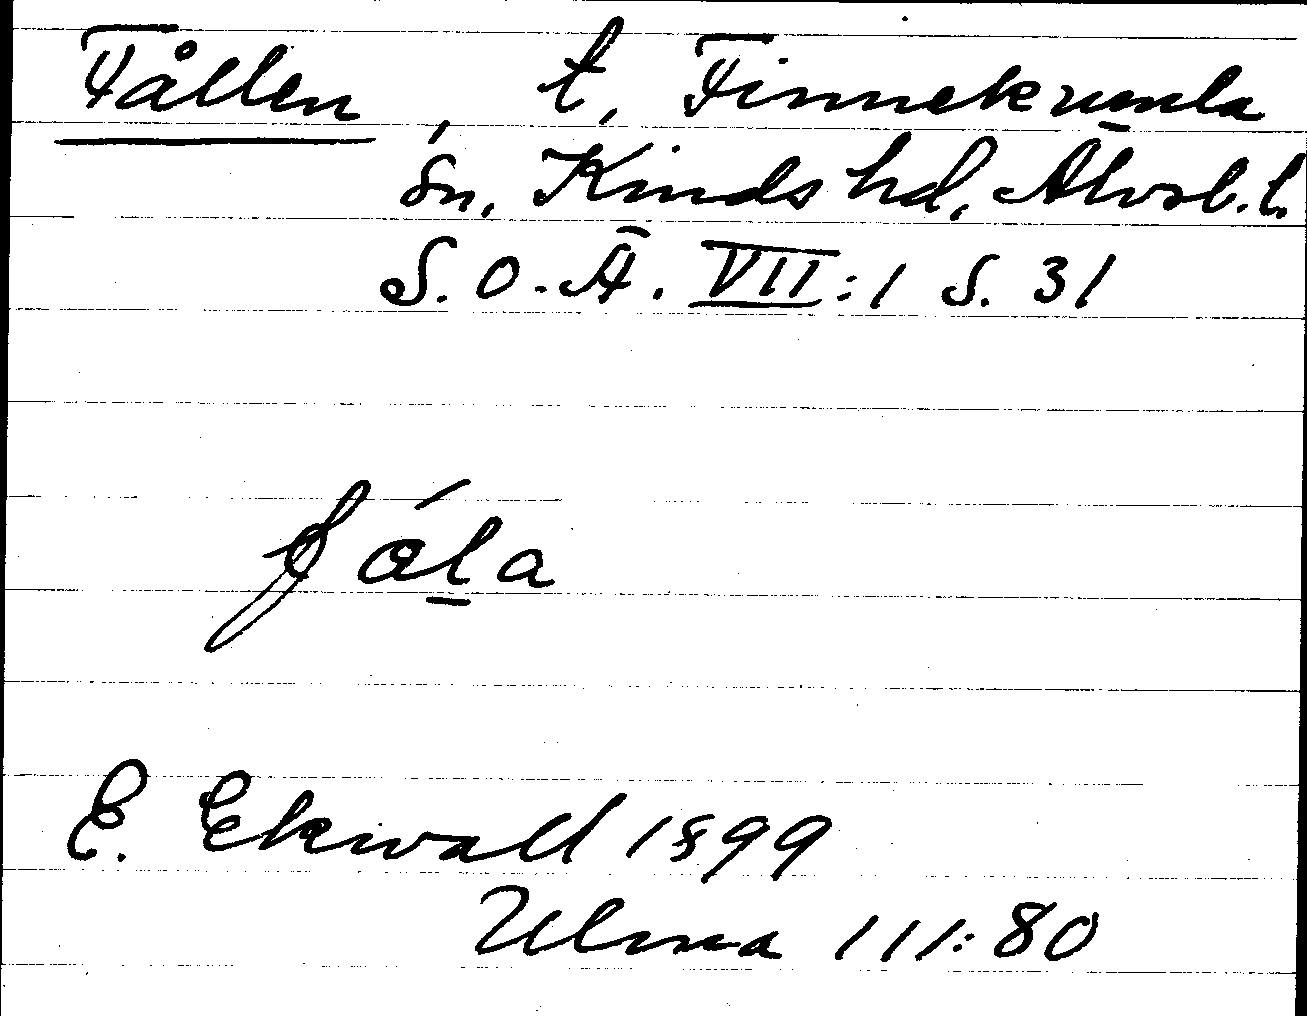 Fållen, t, Finnekumla
sn, Kinds hd, Älvsb. l.
S. O. Ä. VII:1 S. 31
fɷ́la
E. Ekwall 1899
Ulma 111:80